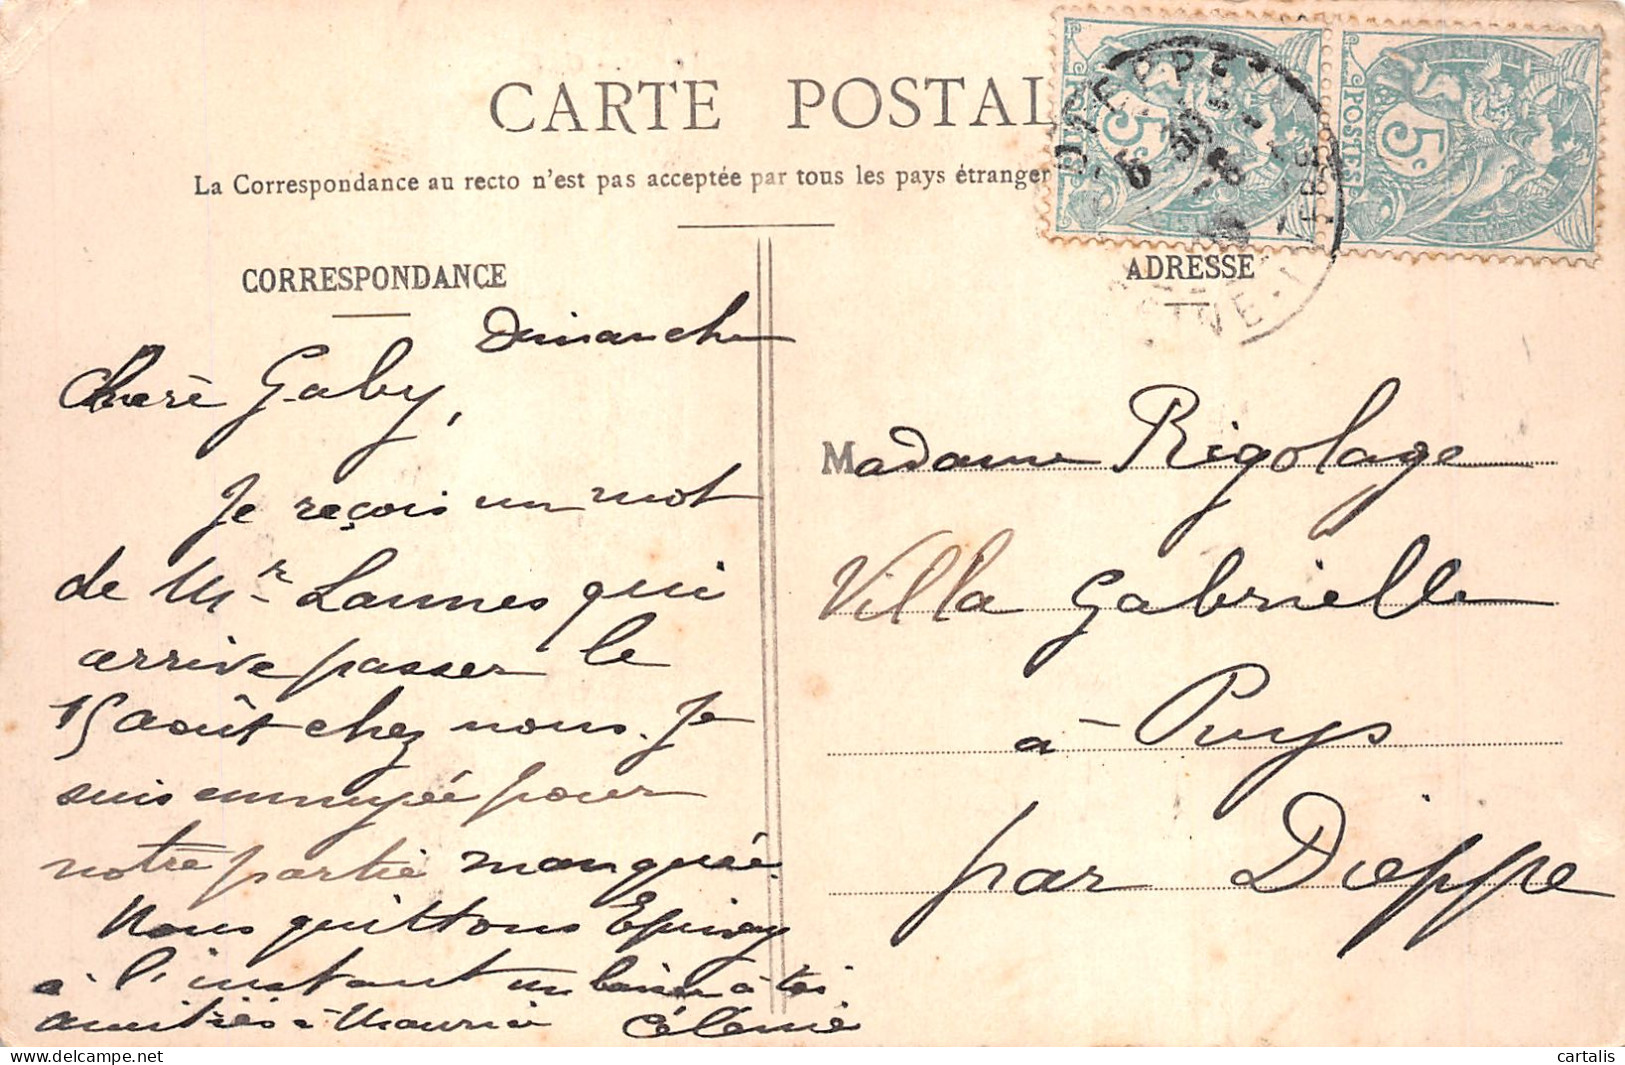 CARTE POSTAL
La Correspondance au recto n'est pas acceptée par tous les pays étranger
CORRESPONDANCE
Dimanche
Chère Gaby,
Je reçois un mot
de Mr Lannes qui
arrive passer le
15 août chez nous. Je
suis ennuyée pour
notre partie manquée.
Nous quittons Epinay
à l'instant un baiser à toi
amitiés à Maurice Célénie
DIEPPE
POSTES
5c
5c
ADRESSE
Madame Rigolage
Villa Gabrielle
à Puys
par Dieppe
cartalis